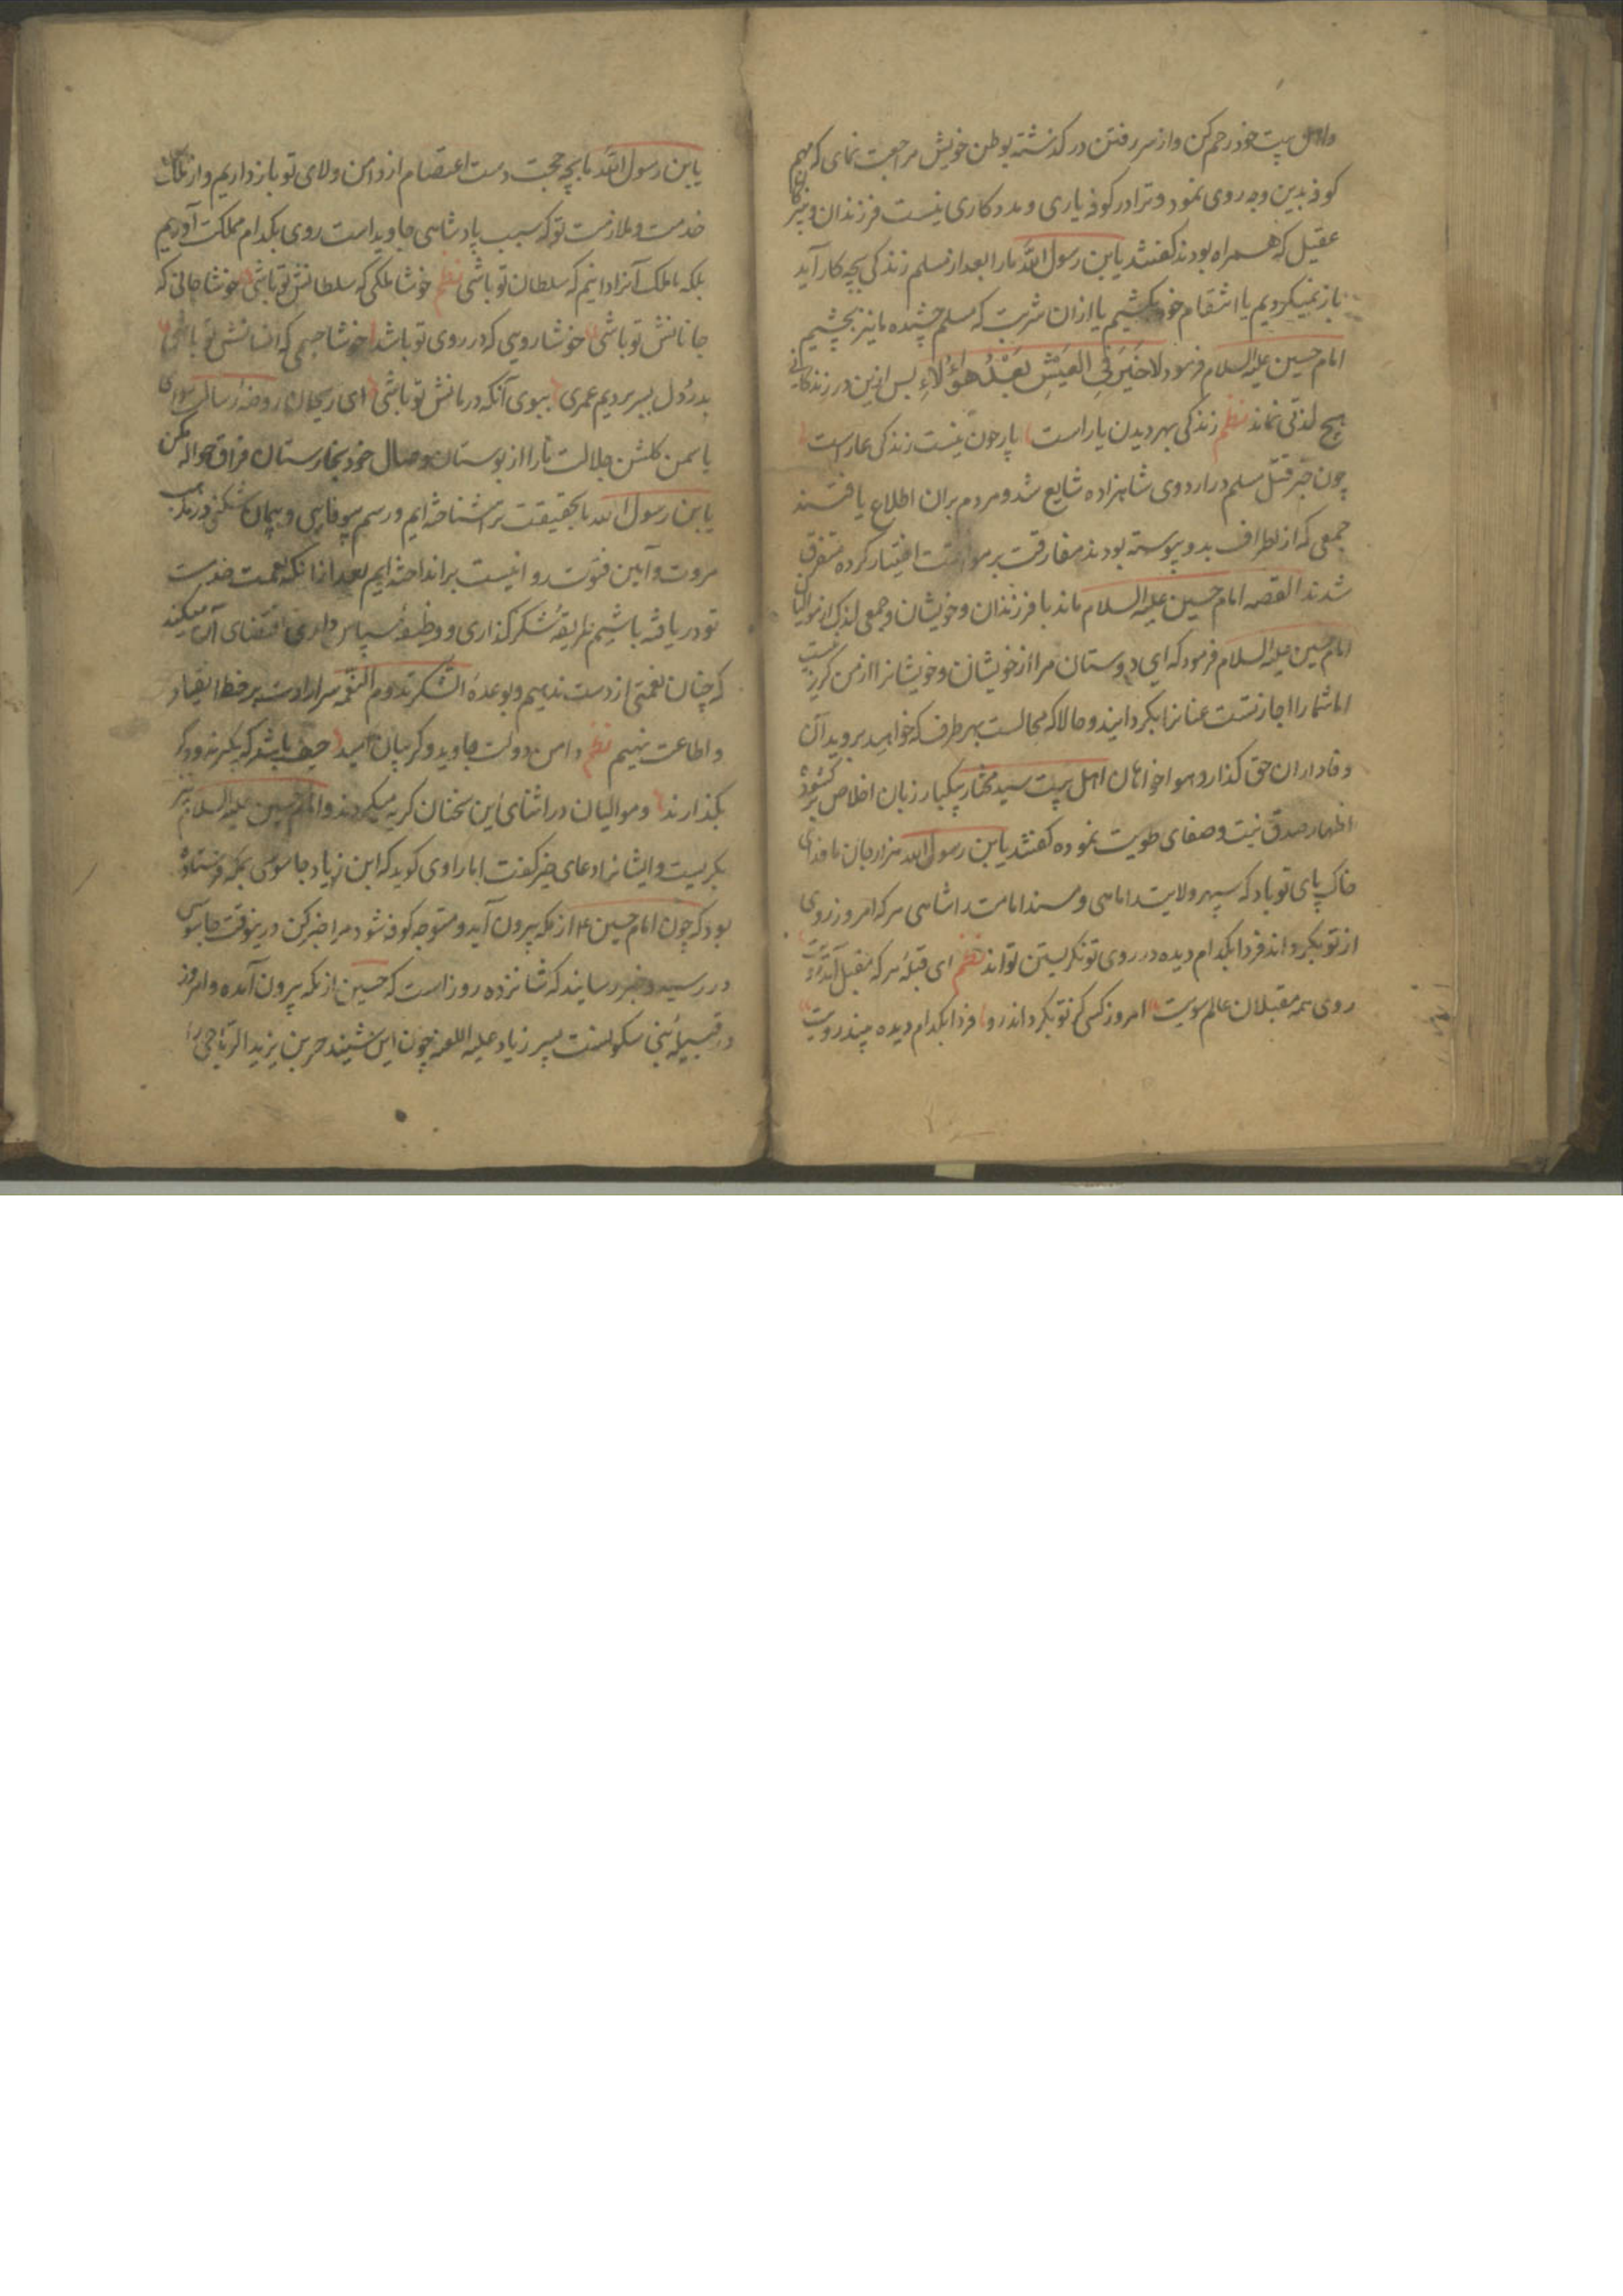 واهل بیت خود رحم کن واز سر رفتن در گذشته بوطن خویش مراجعت نمای که مهم
کوفه بدین وجه روی نمود و ترا در کوفه یاری و مددکاری نیست فرزندان و نبیرکان
عقیل که همراه بودند کفتند یابن رسول الله مارا بعد از مسلم زندکی بچه کار آید
باز نمیکردیم یا انتقام خود بکشیم یا ازان شربت که مسلم چشیده ما نیز بچشیم
امام حسین علیه السلام فرمود لا خَیرَ فِی العَیشِ بَعْدُ هؤُلاءِ پس ازین در زندکانی
هیچ لذتی نماند نظم زندکی بهر دیدن یار است یار چون نیست زندکی عار است
چون خبر قتل مسلم در اردوی شاهزاده شایع شد و مردم بران اطلاع یافتند
جمعی که از اطراف بدو پیوسته بودند مفارقت بر موافقت اختیار کرده متفرق
شدند القصه امام حسین علیه السلام ماند با فرزندان و خویشان و جمعی اندک از موالیان
امام حسین علیه السلام فرمود که ای دوستان مرا از خویشان و خویشانرا از من کریز نیست
اما شما را اجازتست عنانرا بکردانید و حالا که مجالست بهر طرف که خواهید بروید آن
وفاداران حق کذار و هواخواهان اهل بیت سید مختار بیکبار زبان اخلاص برکشوده
اظهار صدق نیت و صفای طویت نموده کفتند یابن رسول الله هزار جان ما فدای
خاک پای تو باد که سپهر ولایت را ماهی و مسند امامت را شاهی هر که امروز روی
از تو بکرداند فردا بکدام دیده در روی تو نکریستن تواند نظم ای قبلهٔ هر که مقبل آمد کویت
روی همه مقبلان عالم سویت امروز کسی کز تو بکرداند رو فردا بکدام دیده بیند رویت
یابن رسول الله ما بچه حجت دست اعتصام از دامن ولای تو باز داریم و از ملک
خدمت و ملازمت تو که سبب پادشاهی جاوید است روی بکدام مملکت آوریم
بلکه ما ملک آنرا دانیم که سلطان تو باشی نظم خوشا ملکی که سلطانش تو باشی خوشا جانی که
جانانش تو باشی خوشا رویی که در روی تو باشد خوشا جسمی که انسانش تو باشی
بدرد دل بسر بردیم عمری ببوی آنکه درمانش تو باشی ای ریحان روضه رسالت وای
یاسمن کلشن جلالت ما را از بوستان وصال خود بخارستان فراق حواله مکن
یابن رسول الله ما بحقیقت ترا شناخته ایم و رسم بیوفایی و پیمان شکنی در مذهب
مروت و آیین فتوت روا نیست بر انداخته ایم بعد از آنکه نعمت خدمت
تو دریافته باشیم طریقهٔ شکر کذاری و وظیفهٔ سپاس داری اقتضای آن میکند
که چنان نعمتی از دست ندهیم و بوعدهٔ الشکر تدوم النعم سر ارادت بر خط انقیاد
و اطاعت نهیم نظم دامن دولت جاوید و کریبان امید حیف باشد که بکیرند و دکر
بکذارند و موالیان در اثنای این سخنان کریه میکردند و امام حسین علیه السلام نیز
بکریست و ایشانرا دعای خیر کفت اما راوی کوید که ابن زیاد جاسوسی بمکه فرستاده
بود که چون امام حسین ع از مکه بیرون آید و متوجه کوفه شود مرا خبر کن درینوقت جاسوس
در رسید و خبر رسانید که شانزده روز است که حسین از مکه بیرون آمده و امروز
در قبیلهٔ بنی سکونست پسر زیاد علیه اللعنه چون این شنید حر بن یزید الریاحی را